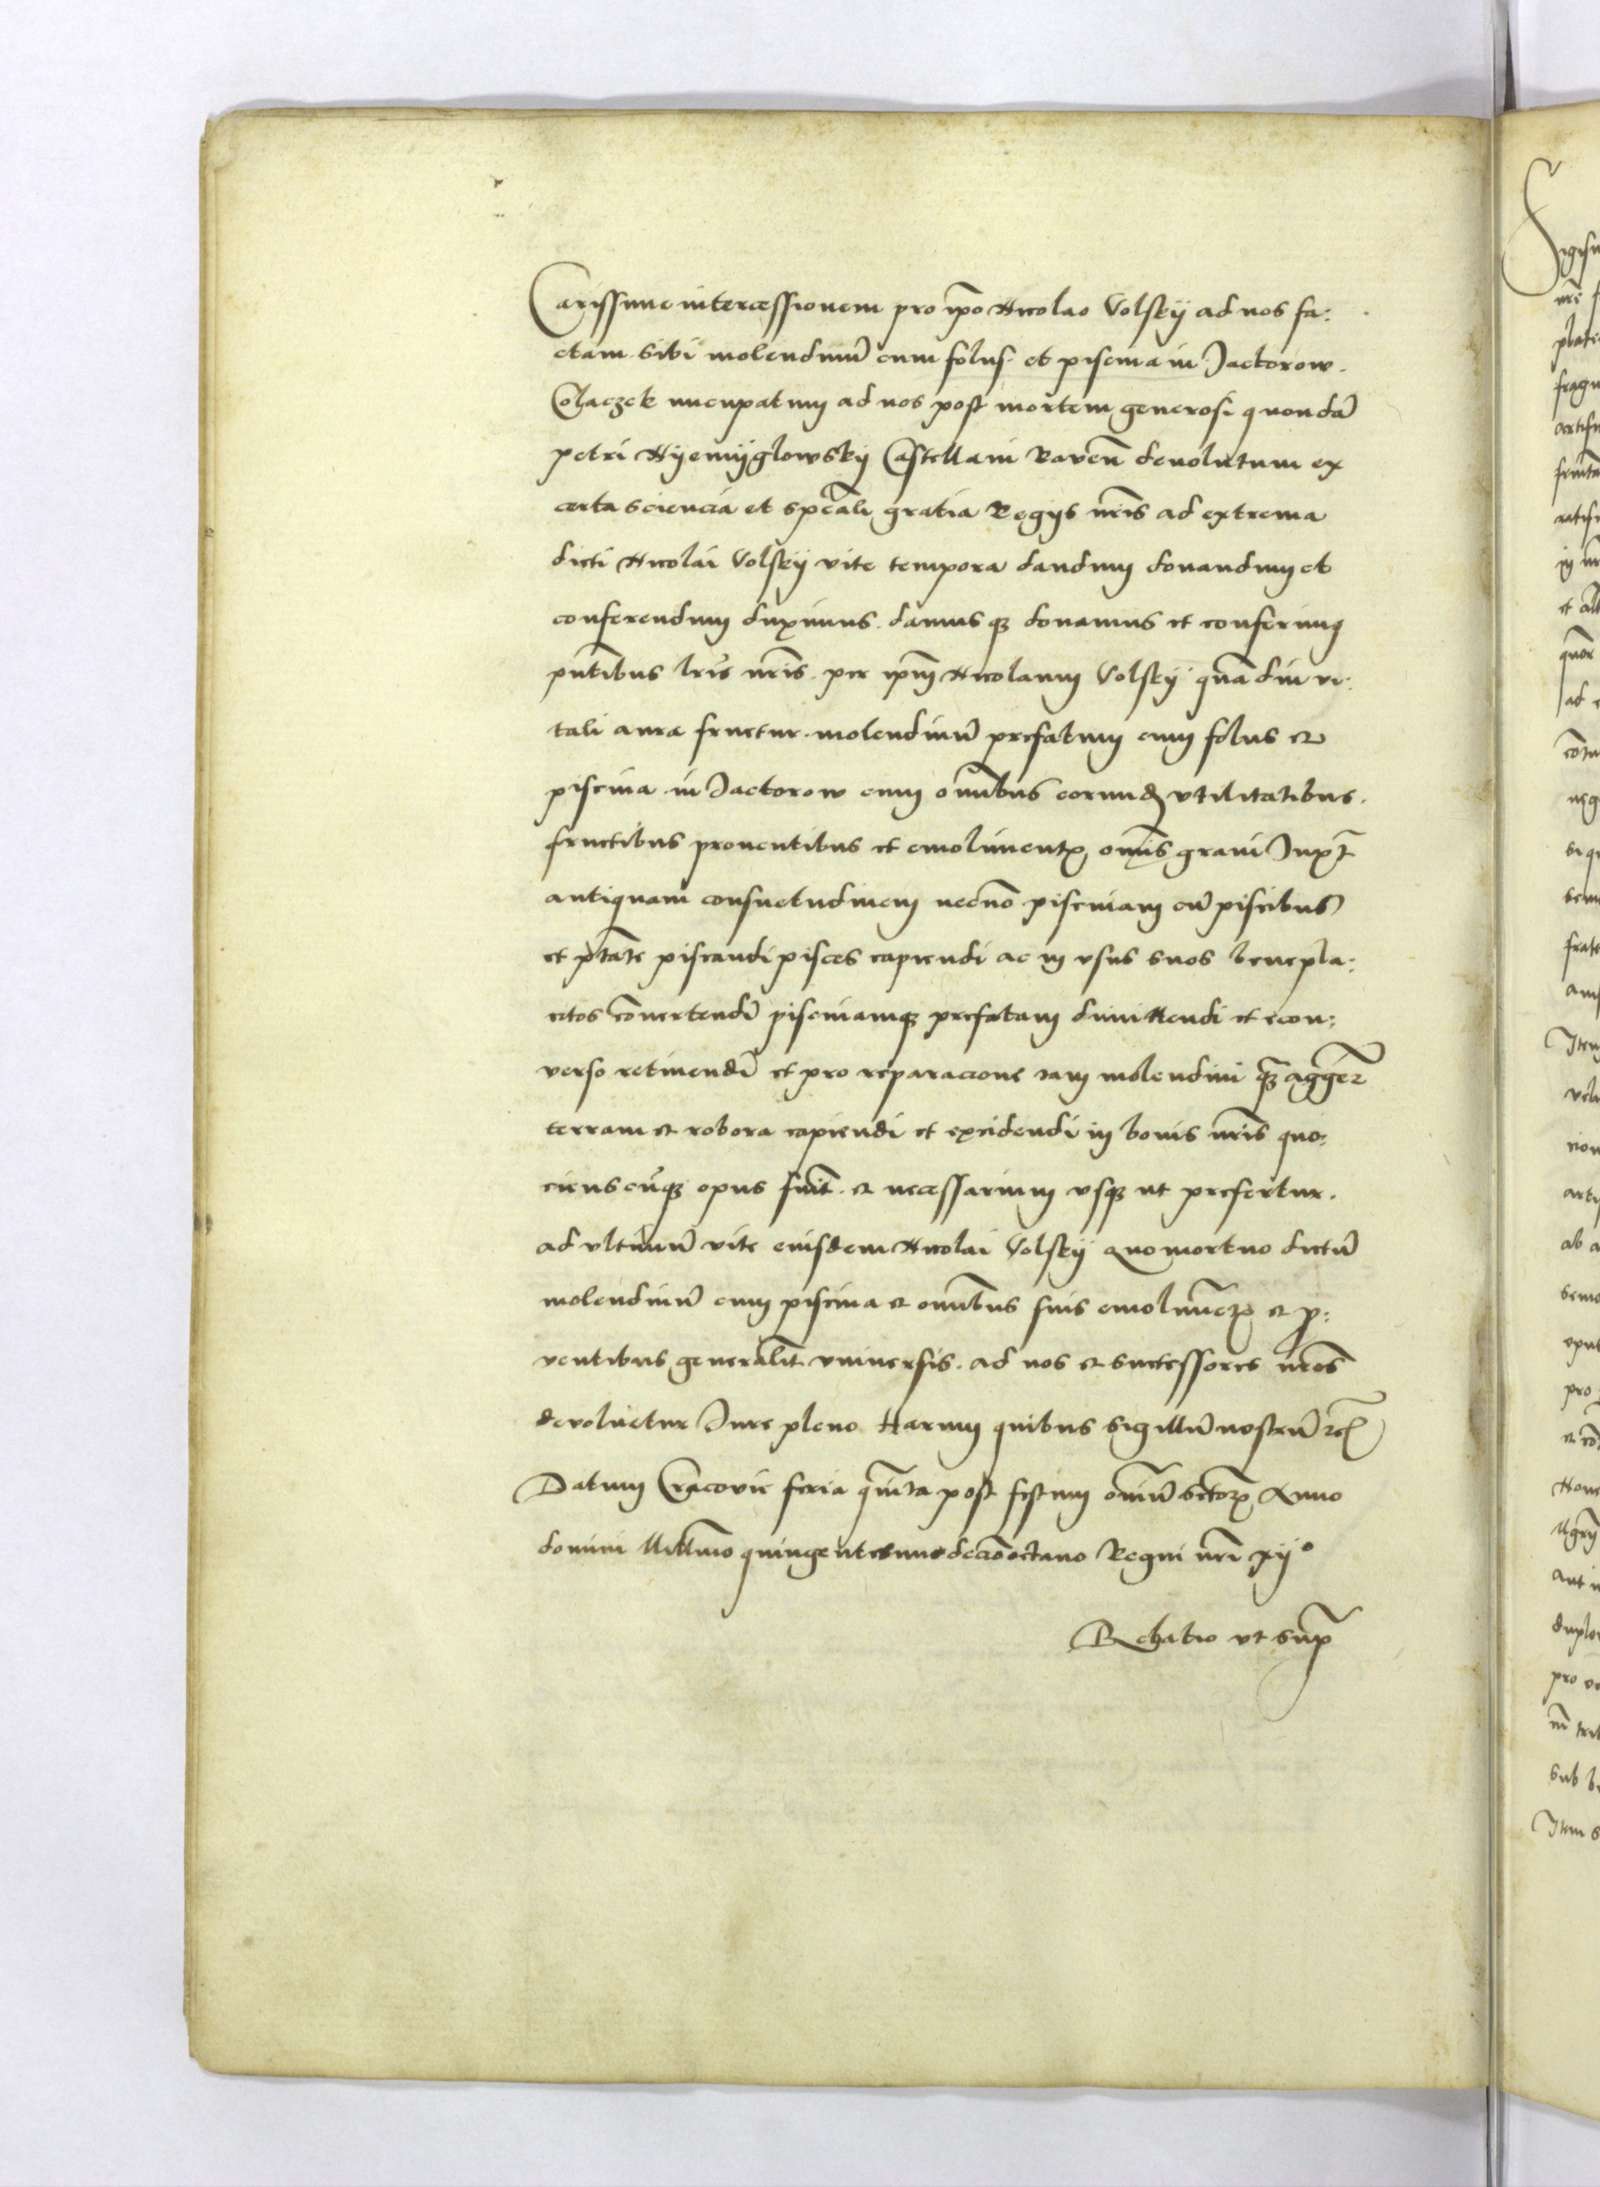 Carissime intercessionem pro ip̄o Nicolao Volsky ad nos fa:
ctam sibi molendinū cum folus et piscina in Jactorow.
Colaczek nucupatum ad nos post mortem generosi quondā
petri Nyemyglowsky Castellani Raveñ devolutum ex
certa sciencia et sp̄cāli gratia Regijs nr̄is ad extrema
dicti Nicolai Volsky vite tempora dandum donandum et
conferendum duximus. damus qȝ donamus et conferimus
pn̄tibus lr̄is nr̄is. per ip̄m Nicolaum Volsky quādiu vi:
tali aura fruetur. molendinū prefatum cum folus et
piscina in Jactorow cum om̄ibus eorundem vtilitatibus.
fructibus proventibus et emolimentꝝ om̄is grani Juxt̄
antiquam consuetudinem necnō piscinam cū piscibus
et ptāte piscandi pisces capiendi ac in vsus suos benepla:
citos cōnertendi piscinamqȝ prefatam dimittendi et econ:
verso retinendi et pro reparacione tam molendini qȝ̄ aggeꝝ
terram et robora capiendi et excidendi in bonis nr̄is quo:
cienscūqȝ opus fuīt. et necessarium vsqȝ ut prefertur.
ad vltimū vite eiusdem Nicolai Volsky Quo mortuo dictū
molendinū cum piscina et om̄ibus suis emolumētꝝ et ꝓ:
ventibus generalīt vniversis. ad nos et successores nr̄os
devoluetur Jure pleno Harum quibus sigillū nostrū rc̄
Datum Cracovie feria quīta post festum om̄iū sctorꝝ Anno
domini Mill̄mo quingentesimo decīooctavo Regni nr̄i xijº
Relatio vt sup̄